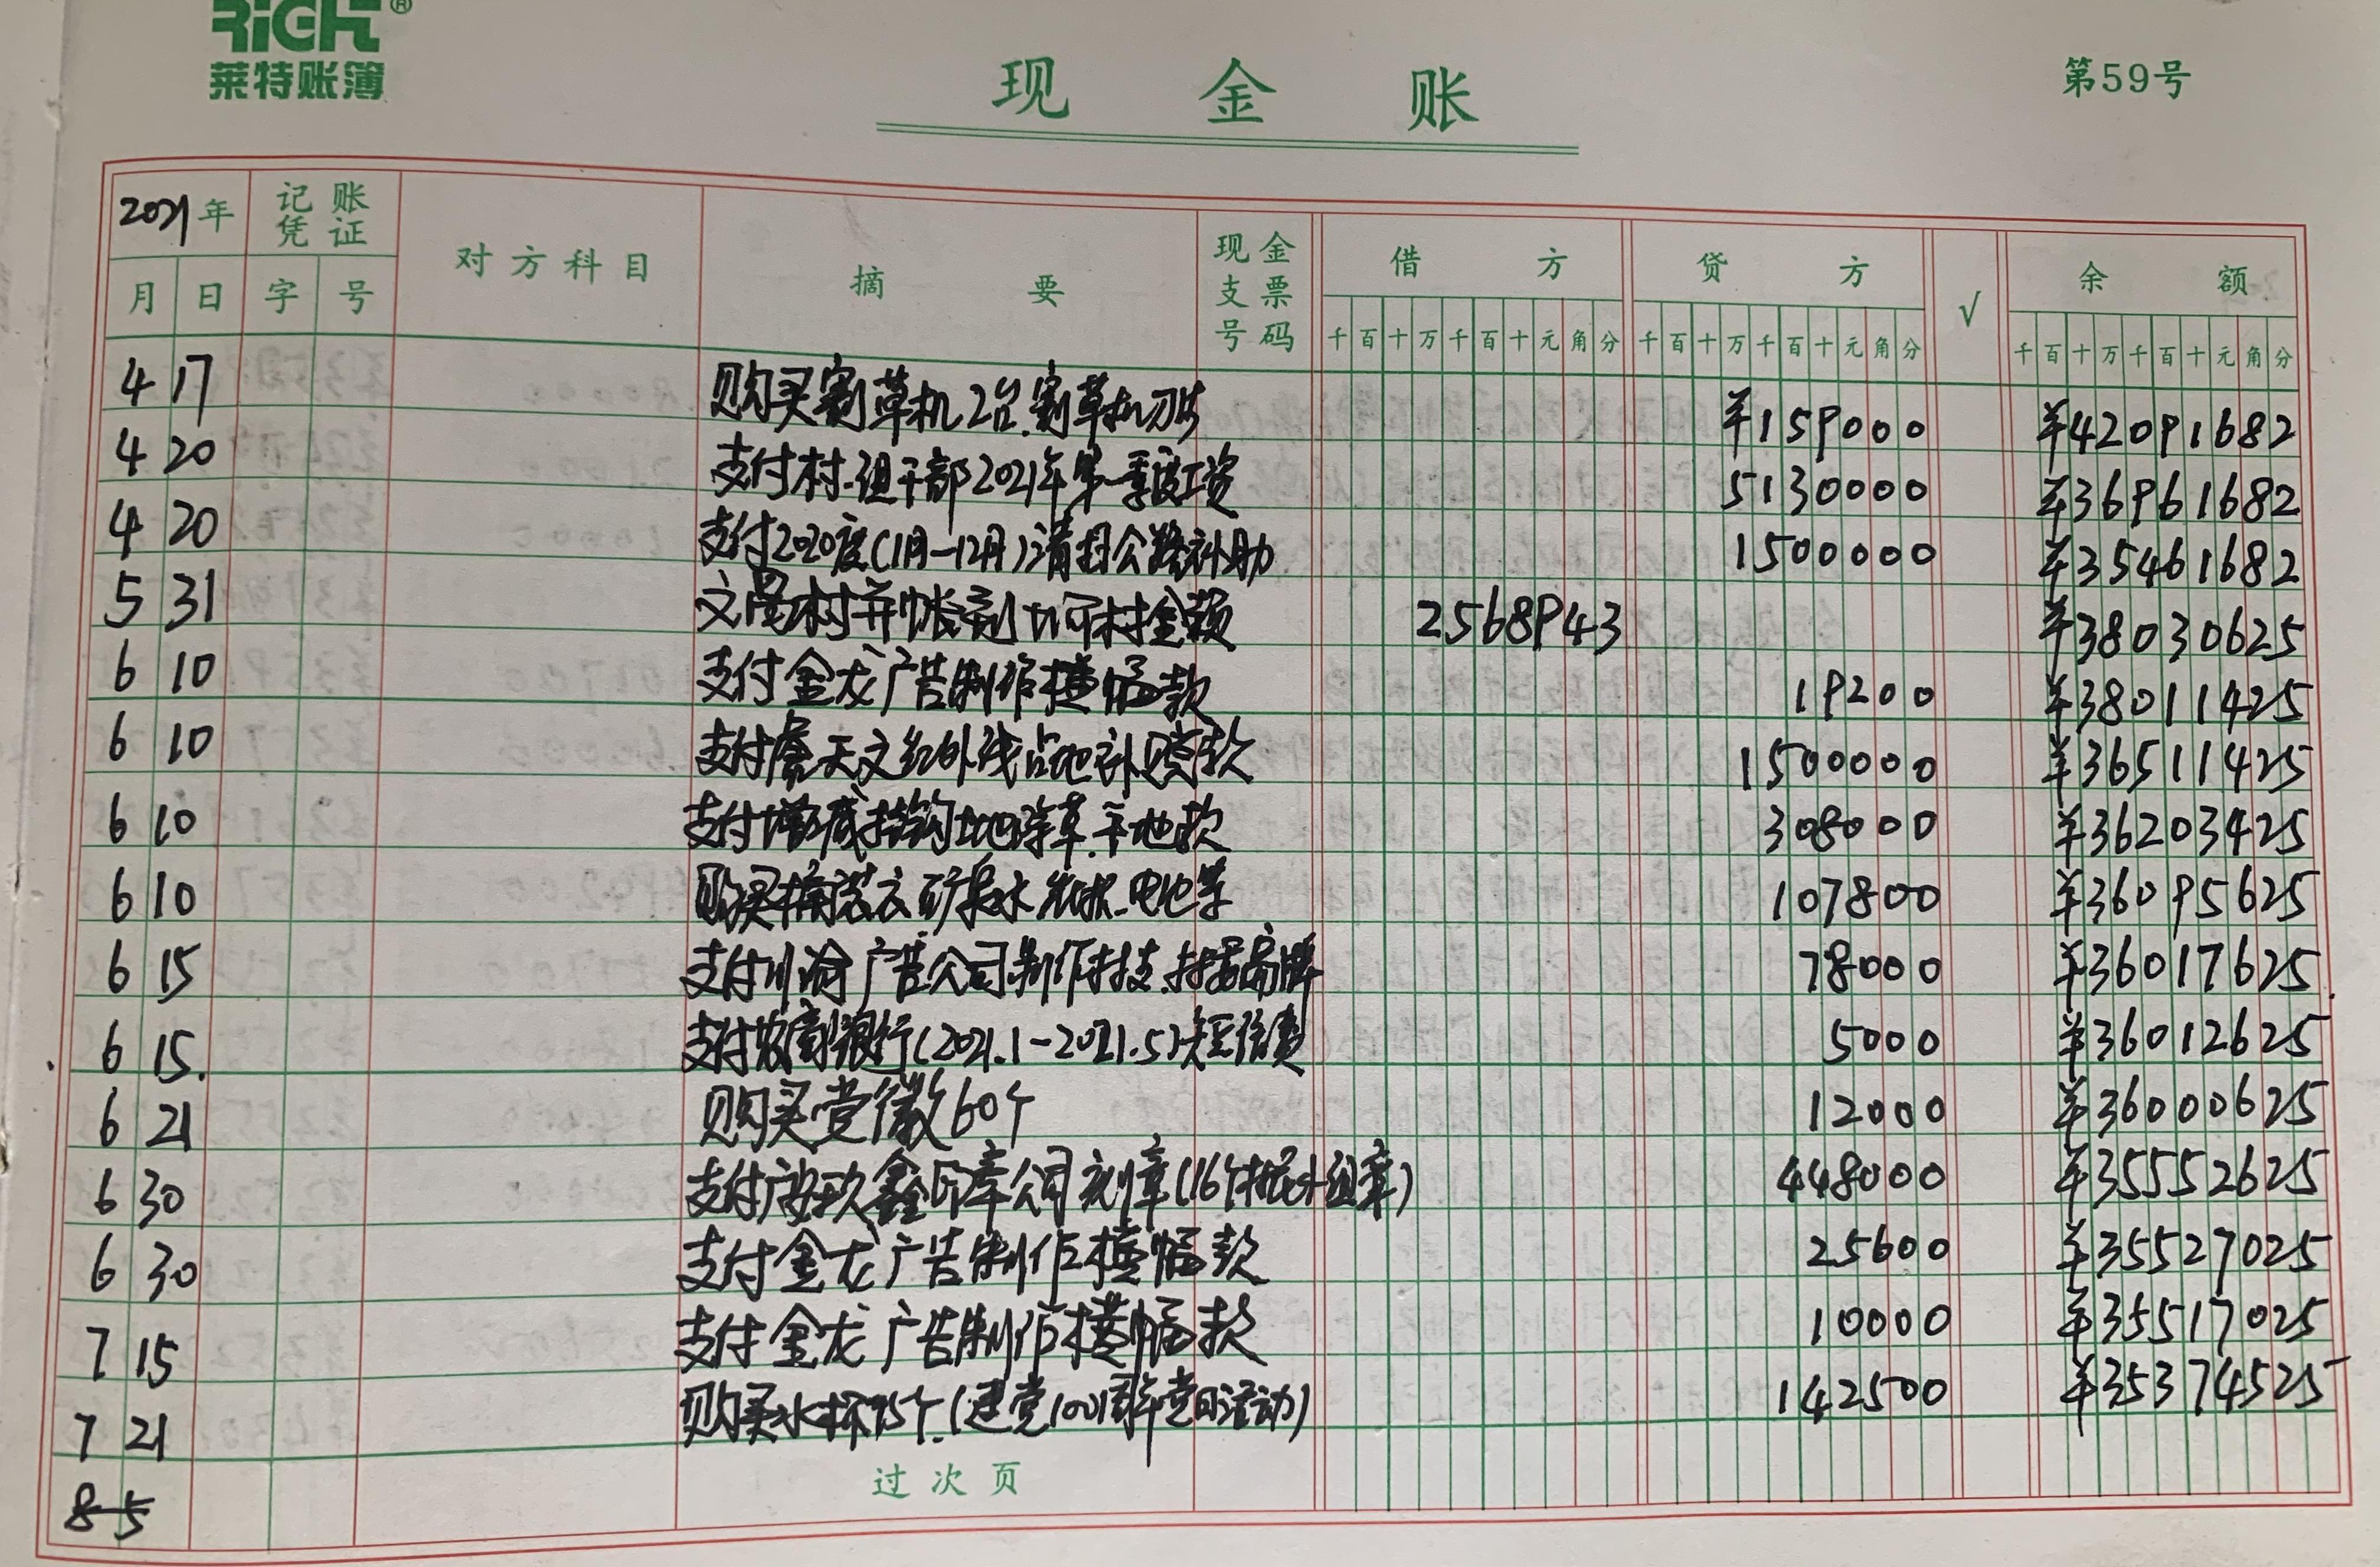 RiGHT®
莱特账簿
现金账
第59号
2021年 记账凭证 对方科目 摘要 现金支票号码 借方 贷方 √ 余额
月 日 字 号 千百十万千百十元角分 千百十万千百十元角分 千百十万千百十元角分
4 17 购买割草机2台.割草机刀片 ¥159000 ¥42091682
4 20 支付村.组干部2021年第一季度工资 5130000 ¥36961682
4 20 支付2020度(1月-12月)清扫公路补助 1500000 ¥35461682
5 31 村并帐到 村金额 2568943 ¥38030625
6 10 支付金龙广告制作横幅款 19200 ¥38011425
6 10 支付 天文红外线占地补 款 1500000 ¥36511425
6 10 支付增减挂钩土地除草.平地款 308000 ¥36203425
6 10 购买 矿泉水 电池等 107800 ¥36095625
6 15 支付川渝广告公司制作村支.村委 牌 78000 ¥36017625
6 15. 支付农商银行(2021.1-2021.5)短信费 5000 ¥36012625
6 21 购买党徽60个 12000 ¥36000625
6 30 支付 鑫印章公司刻章(16个 组章) 448000 ¥35552625
6 30 支付金龙广告制作横幅款 25600 ¥35527025
7 15 支付金龙广告制作横幅款 10000 ¥35517025
7 21 购买水杯95个.(建党100周年党日活动) 142500 ¥35374525
8 5 过次页